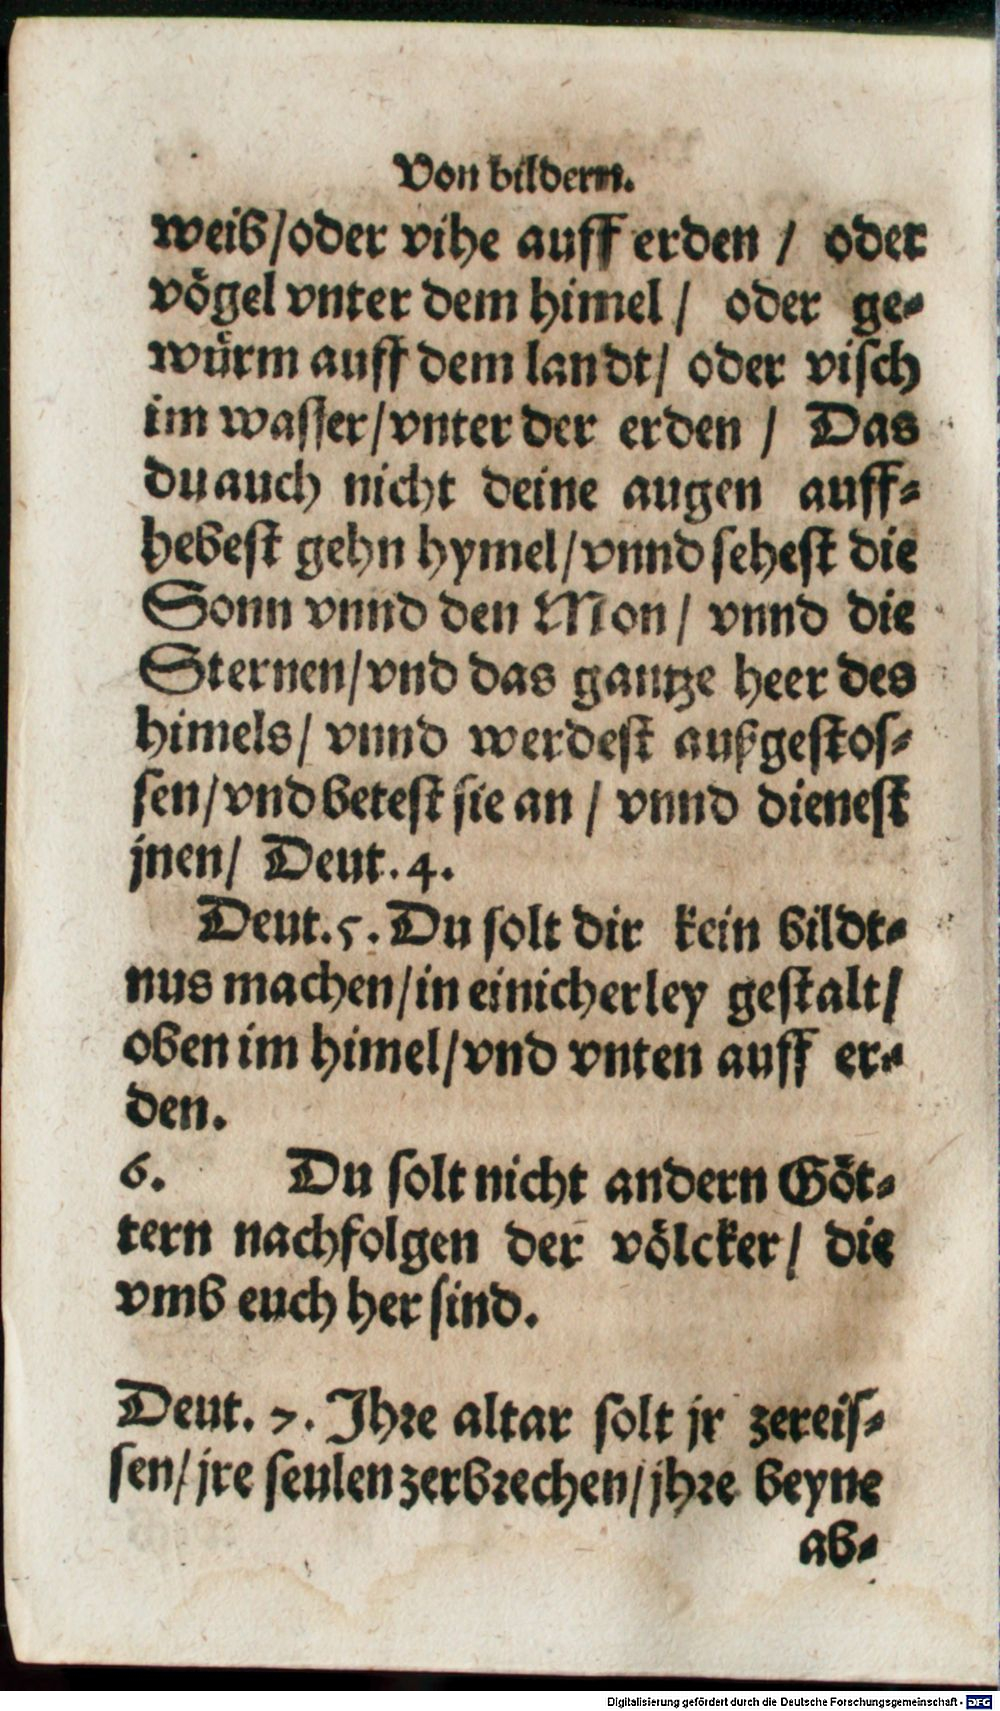 Von bildern.
weib/oder vihe auff erden / oder
vögel vnter dem himel / oder ge-
würm auff dem landt/ oder visch
im wasser/vnter der erden / Das
du auch nicht deine augen auff-
hebest gehn hymel/vnnd sehest die
Sonn vnnd den Mon / vnnd die
Sternen/vnd das gantze heer des
himels/ vnnd werdest außgestos-
sen/vnd betest sie an / vnnd dienest
jnen/ Deut. 4.
Deut. 5. Du solt dir kein bildt-
nus machen/in einicherley gestalt/
oben im himel/vnd vnten auff er-
den.
6. Du solt nicht andern Göt-
tern nachfolgen der völcker/ die
vmb euch her sind.
Deut. 7. Ihre altar solt jr zereis-
sen/jre seulen zerbrechen/jhre beyne
ab-
Digitalisierung gefördert durch die Deutsche Forschungsgemeinschaft - DFG